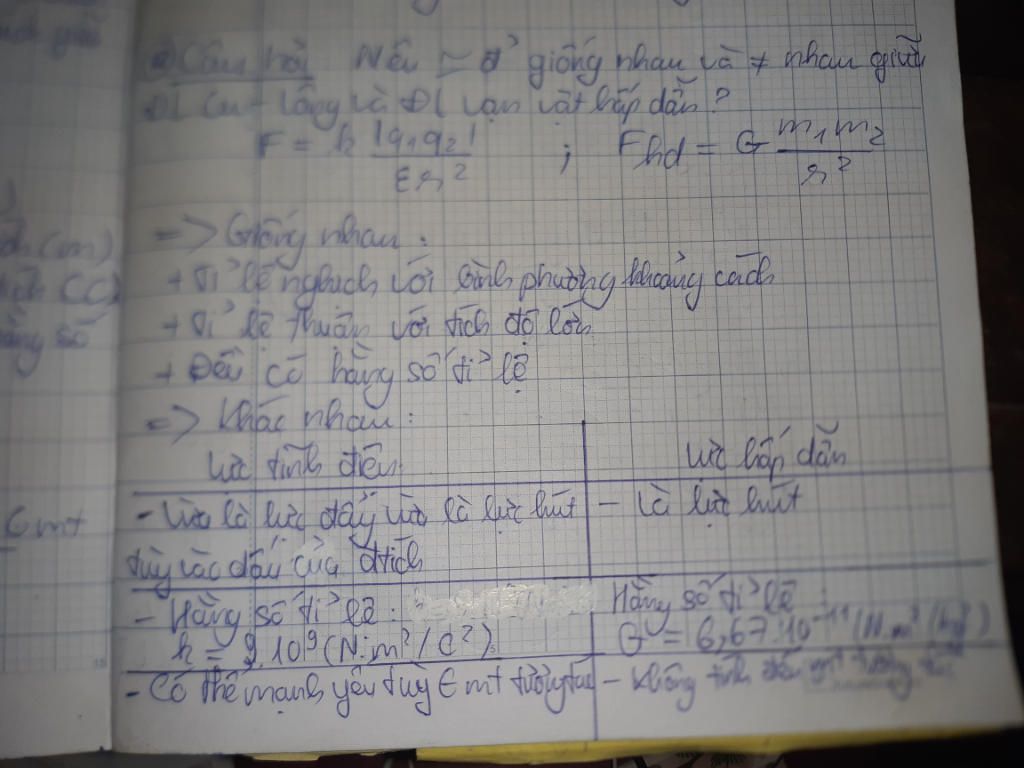 Câu hỏi Nêu giống nhau và ≠ nhau giữa
ĐL Cu-lông và ĐL vạn vật hấp dẫn?
F = k |q₁q₂| / εr² ; Fhd = G m₁m₂ / r²
=> Giống nhau:
+ Tỉ lệ nghịch với bình phương khoảng cách
+ Tỉ lệ thuận với tích độ lớn
+ Đều có hằng số tỉ lệ
=> Khác nhau:
Lực tĩnh điện
Lực hấp dẫn
- Vừa là lực đẩy vừa là lực hút
tùy vào dấu của đtích
- Là lực hút
- Hằng số tỉ lệ:
k = 9.10⁹ (N.m²/C²)
Hằng số tỉ lệ
G = 6,67.10⁻¹¹ (N.m²/kg²)
- Có thể mạnh yếu tùy ∈ mt tương tác
- Không tính đến mt tương tác
ch (m)
ích (C)
ằng số
∈ mt